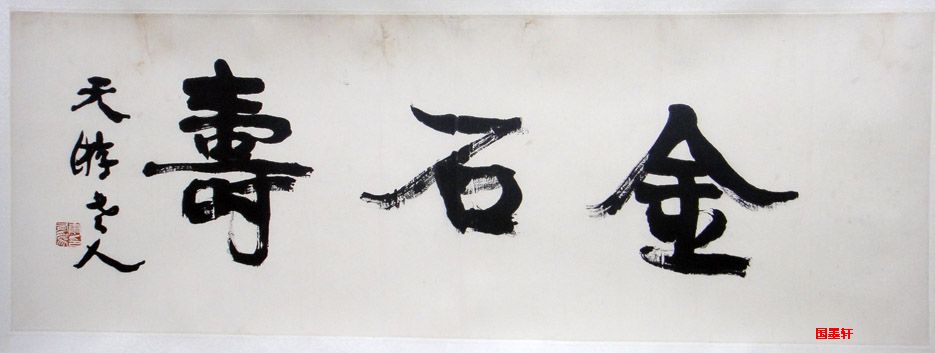 金石壽
天游老人
国墨轩